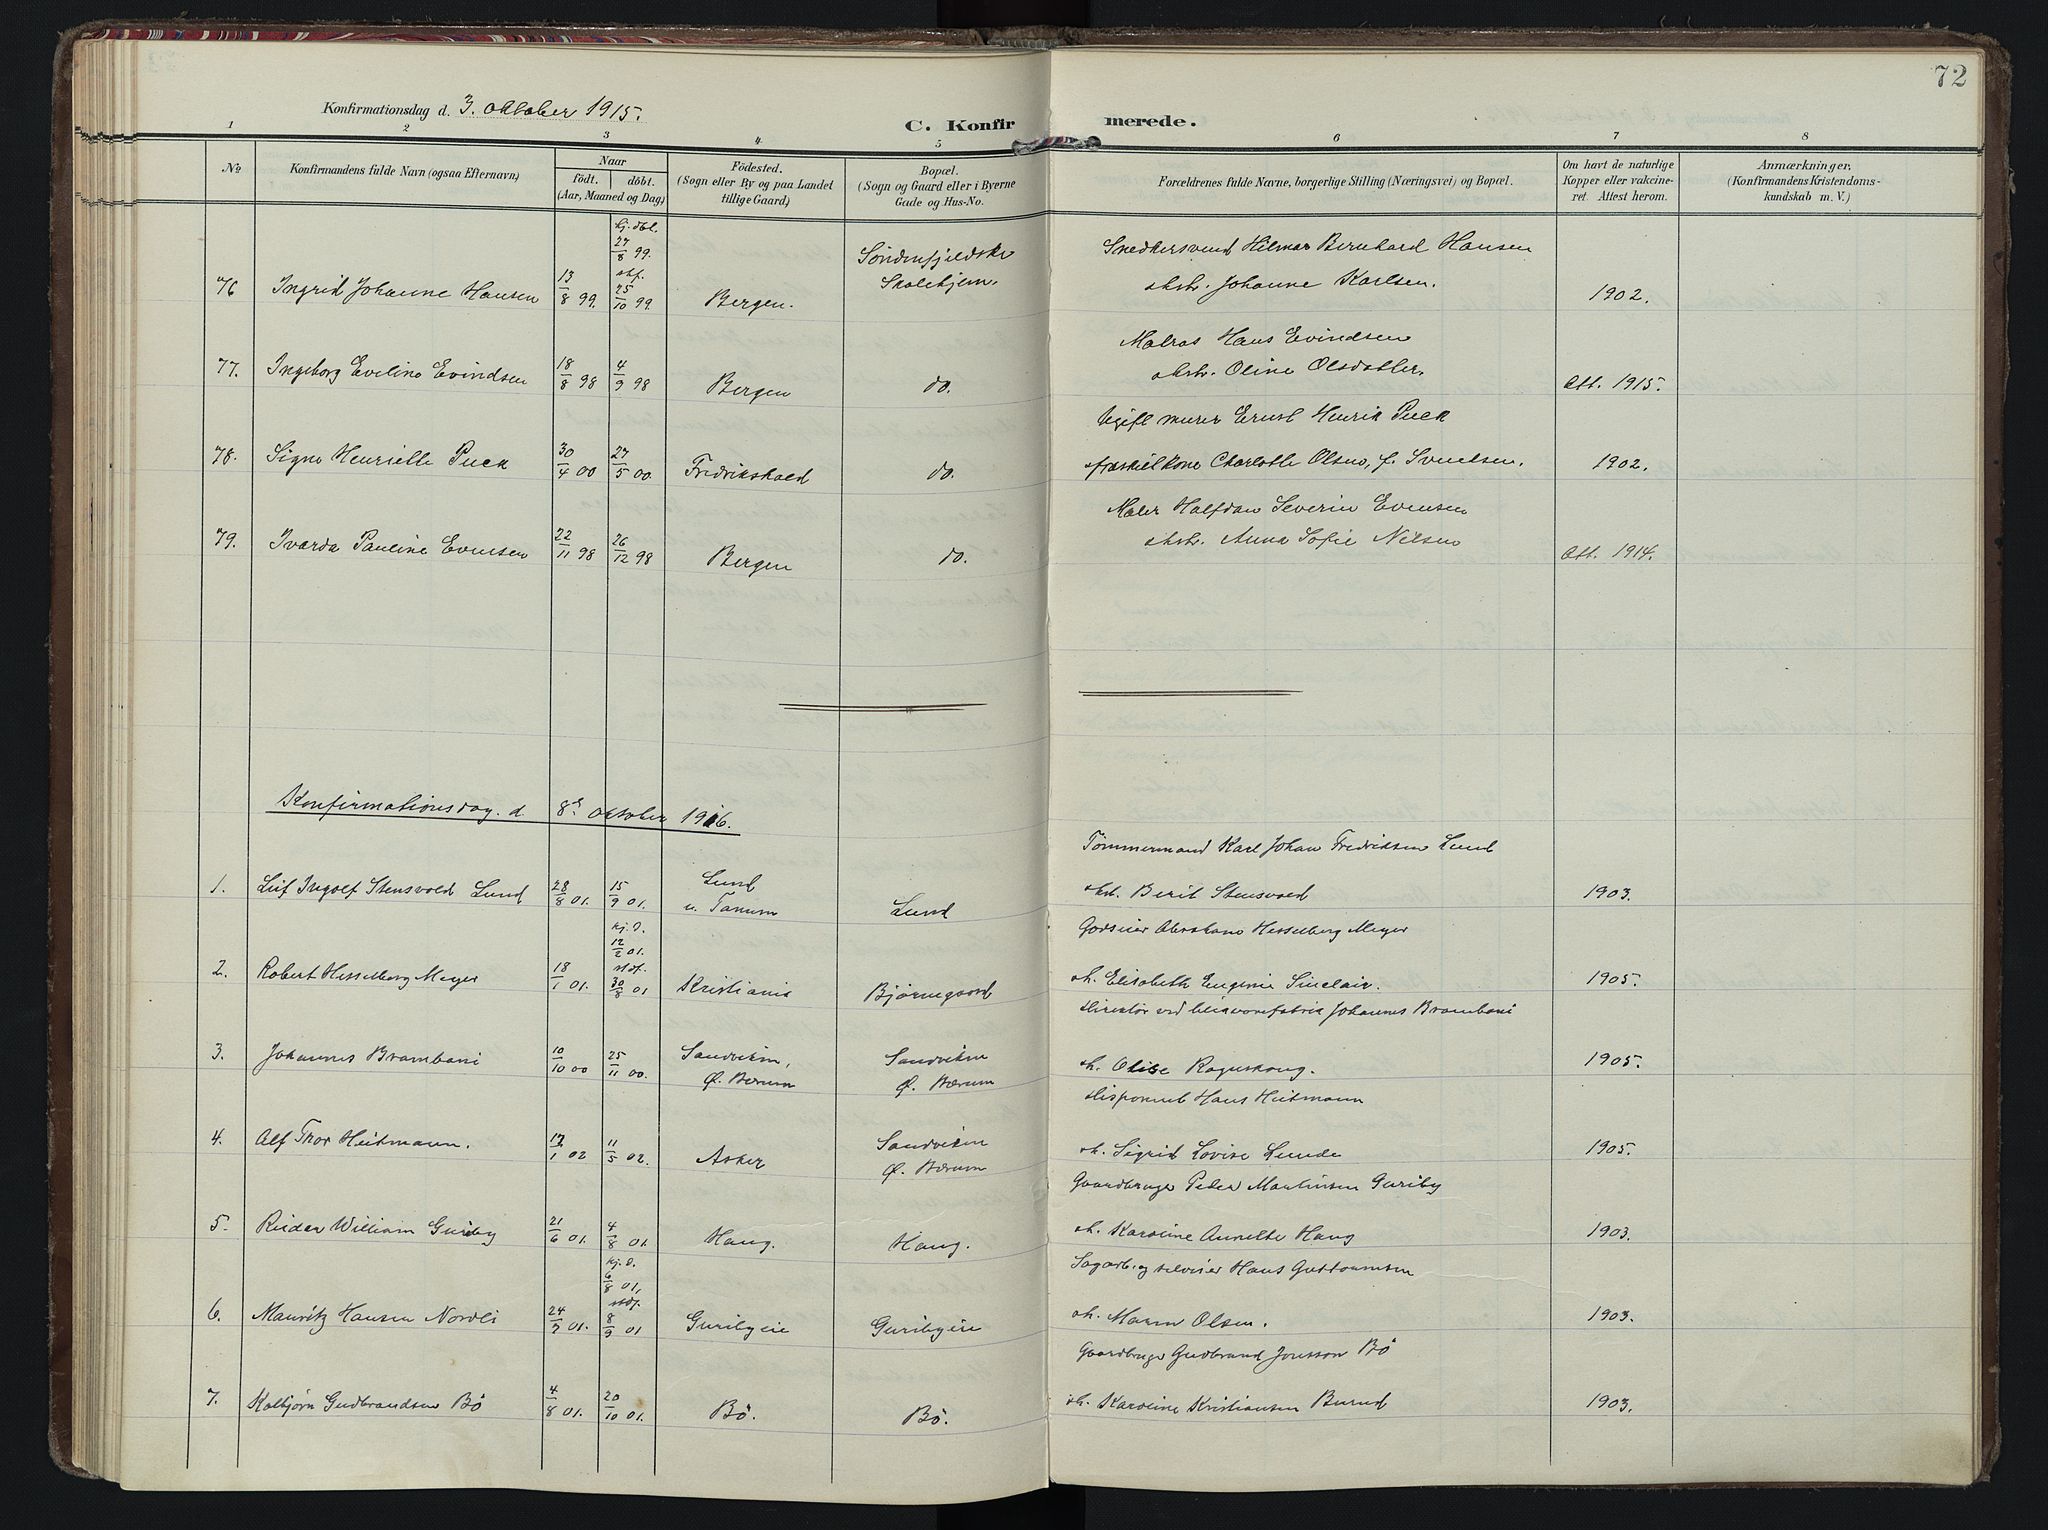 72
Konfirmationsdag d. 3. oktober 1915.
C. Konfirmerede.
1 2 3 4 5 6 7 8
No
Konfirmandens fulde Navn (ogsaa Efternavn)
Naar
födt. döbt.
(Aar, Maaned og Dag)
Födested.
(Sogn eller By og paa Landet
tillige Gaard)
Bopæl.
(Sogn og Gaard eller i Byerne
Gade og Hus-No.
Forældrenes fulde Navne, borgerlige Stilling (Næringsvei) og Bopæl.
Om havt de naturlige
Kopper eller vakcine-
ret. Attest herom.
Anmærkninger,
(Konfirmandens Kristendoms-
kundskab m. V.)
kj. dbt.
27/8 99.
Søndenfjeldske
Snedkersvend Hilmar Bernhard Hansen
76 Ingrid Johanne Hansen 13/8 99. stf. 25/10 99. Bergen. Skolehjem. Johanne Karlsen. 1902.
Matros Hans Evindsen
77. Ingeborg Eveline Evindsen 18/8 98 4/9 98 Bergen do. Oline Olsdatter. Att. 1915.
Ugift murer Ernst Henrik Puck
78. Signe Henriette Puck 30/4 00 27/5 00. Fredrikshald do. fraskilt kone Charlotte Olsen, f. 1902.
Maler Halfdan Severin Evensen
79. Ivarda Pauline Evensen 22/11 98 26/12 98 Bergen do. Anna Sofie Nilsen Att. 1914.
Konfirmationsdag d. 8de oktober 1916.
Tømmermand Karl Johan Fredriksen Lund
1. Leif Ingolf Stensvold Lund 28/8 01. 15/9 01. Lund u. Tanum Lund Berit Stensvold 1903.
kj. d. 12/2 01.
Godseier Abraham Hesselberg Meyer
2. Robert Hesselberg Meyer 18/1 01. stdf. 30/8 01 Kristiania Bjørnegaard h. Elisabeth Eugenie Sinclair. 1905.
Direktør ved Johannes Brambani
3. Johannes Brambani 10/10 00 25/11 00. Sandviken, Ø. Bærum Sandviken Ø. Bærum h. Olise 1905.
Disponent Hans Heitmann
4. Alf Thor Heitmann. 17/1 02 11/5 02. Asker Sandviken Ø. Bærum h. Sigrid Lovise Lunde 1905.
Gaardbruger Peder Martinsen Guriby
5. Reidar William Guriby 21/6 01. 4/8 01. Haug. Haug. h. Karoline Annette Haug 1903.
kj. d. 6/8 01,
Sagarb. og selveier Hans Guttormsen
6. Mauritz Hansen Nordli 24/7 01. stdf. 8/9 01 Guribyeie Guribyeie h. Maren Olsen. 1903.
Gaardbruger Gudbrand Jonsson Bø
7. Kolbjørn Gudbrandsen Bø 4/8 01. 20/10 01. Bø. Bø. h. Karoline Kristiansen Burud 1903.